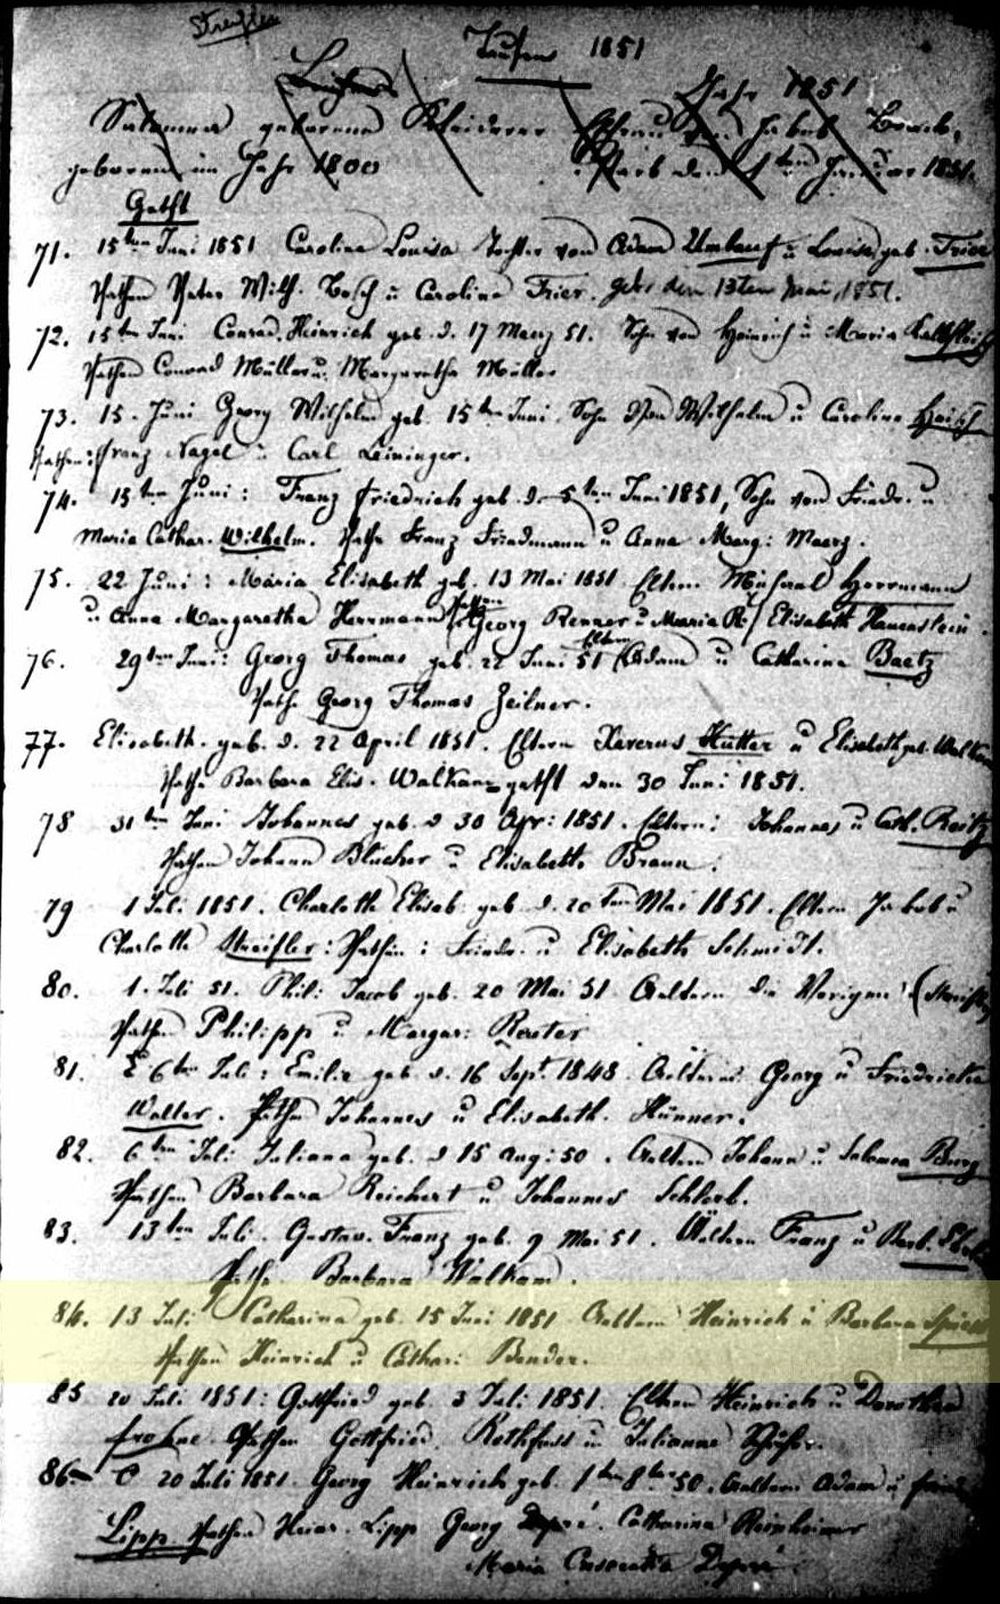 Streifler
Taufen 1851
Jahr 1851
Salomea geborene Kleiderer Ehefrau von Jakob
geboren im Jahr 1800 starb den 1ten Januar 1851.
Getft
71. 15ten Juni 1851 Carolina Louisa Tochter von Adam Umlauf u Louisa geb. Frier
Pathen Peter Wilh. Bosch u Carolina Frier. geb. den 13ten Mai 1851.
72. 15ten Juni Conrad Heinrich geb. d. 17 Maerz 51. Sohn von Heinrich u Maria
Pathen Conrad Müller u. Margaretha Müller
73. 15. Juni Georg Wilhelm geb. 15ten Juni Sohn Von Wilhelm u Carolina
Pathen: Franz Nagel u Carl Leininger.
74. 15ten Juni: Franz Friedrich geb. d. 5ten Juni 1851, Sohn von Friedr. u
Maria Cathar. Wilhelm. Pathe Franz Friedmann u Anna Marg: Maerz.
75. 22 Juni: Maria Elisabeth geb. 13 Mai 1851 Eltern Michael Herrmann
u Anna Margaretha Herrmann Pathen Georg Renner u Maria R. Elisabeth Hauenstein.
76. 29ten Juni: Georg Thomas geb. 22 Juni 51 Eltern Adam u Catharina Baetz
Pathe Georg Thomas Zeilner.
77. Elisabeth. geb. d. 22 April 1851. Eltern Xaverus Hutter u Elisabeth geb. Walkam
Pathe Barbara Elis. Walkam getft den 30 Juni 1851.
78 31ten Juni Johannes geb. d 30 Apr: 1851. Eltern: Johannes u Cath. Reitz
Pathen Johann Blücher u Elisabeth Braun.
79 1 Juli 1851. Charlotte Elisab. geb. d. 20ten Mai 1851. Eltern Jakob u
Charlotte Streifler: Pathen: Friedr. u Elisabeth Schmidt.
80. 1. Juli 51. Phil: Jacob geb. 20 Mai 51 Aeltern die Vorigen (Streifler
Pathen Philipp u Margar: Reuter
81. 6ten Juli: Emilie geb. d. 16 Sept. 1848. Aeltern: Georg u Friedricke
Walter. Pathe Johannes u Elisabeth. Hünner.
82. 6ten Juli Juliana geb. d 15 Aug: 50. Aeltern Johann u Salomea Burg
Pathen Barbara Reichert u Johannes Schlerb.
83. 13ten Juli. Gustav. Franz geb. 9 Mai 51. Aeltern Franz u Barb.
Pathe. Barbara Walkam.
84. 13 Juli Catharina geb. 15 Juni 1851 Aeltern Heinrich u Barbara Spiess
Pathen Heinrich u Cathar: Bender.
85 20 Juli 1851: Gottfried geb. 3 Juli 1851. Eltern Heinrich u Dorothea
Frohne Pathen Gottfried Rothfuss u Julianne Schäfer.
86 20 Juli 1851. Georg Heinrich geb. 1ten 8ber 50. Aeltern Adam u
Lipp Pathen Heinr. Lipp Georg Depré. Catharina Reinheimer
Maria Depré